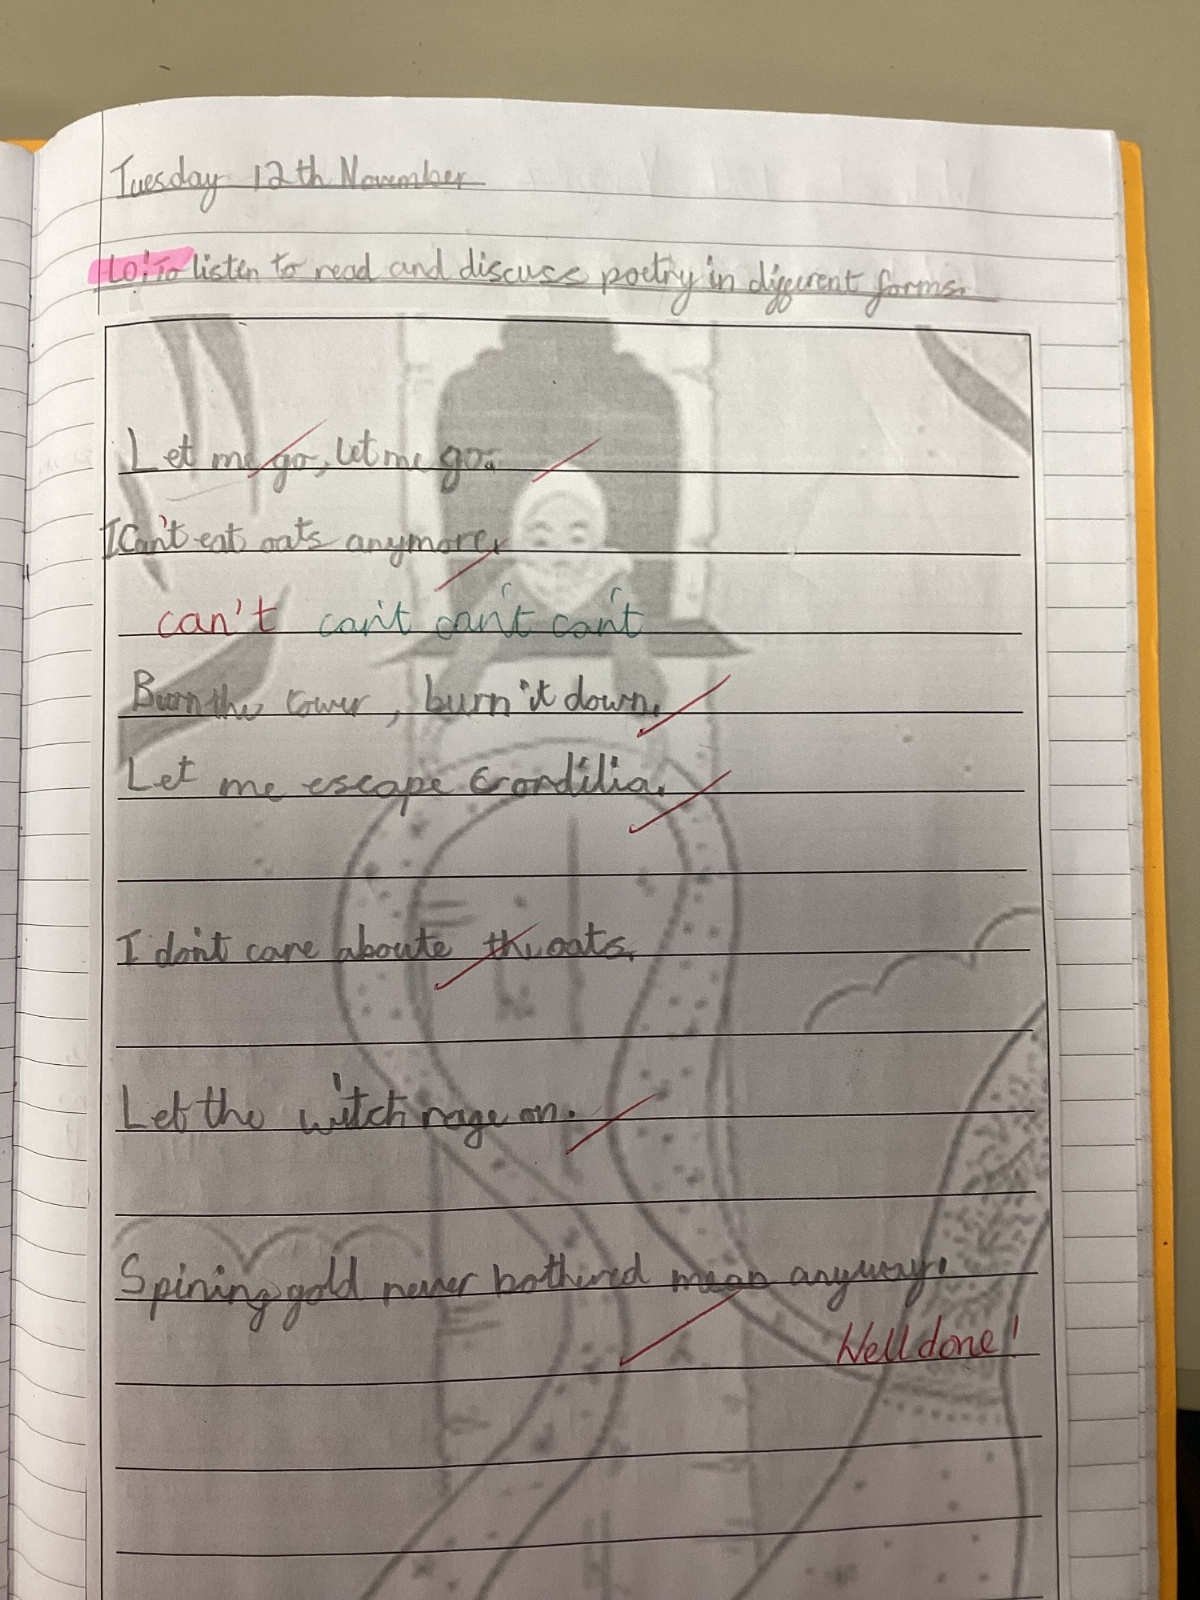 Tuesday 12th November
LO: To listen to read and discuss poetry in different forms.
Let me go, let me go.
I Can't eat oats anymore,
can't can't can't can't
Burn the tower, burn it down.
Let me escape Cordilia.
I don't care aboute the oats.
Let the witch rage on.
Spining gold never bothered anyway.
Well done!